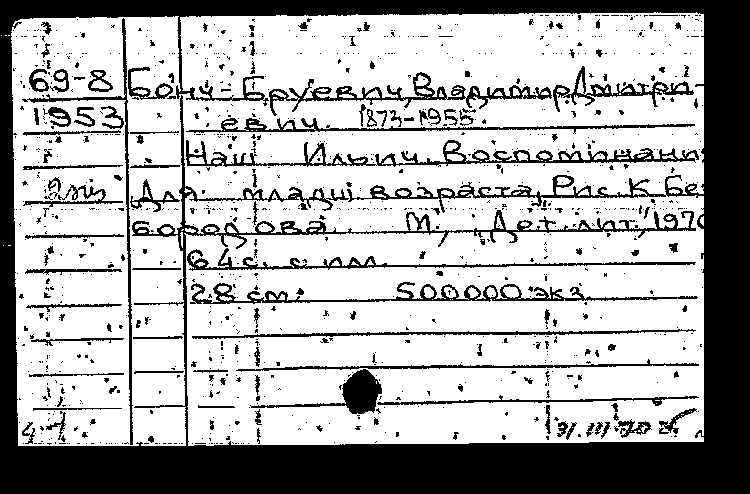 69-8 Бонч-Бруевич, Владимир Дмитри-
1953 евич. 1873-1955.
Наш Ильич. Воспоминани
Для младш возраста, Рис. К. Без
бородова М., "Дет. лит", 1970
64 с. с илл.
28 см. 500000 экз
31.III.70